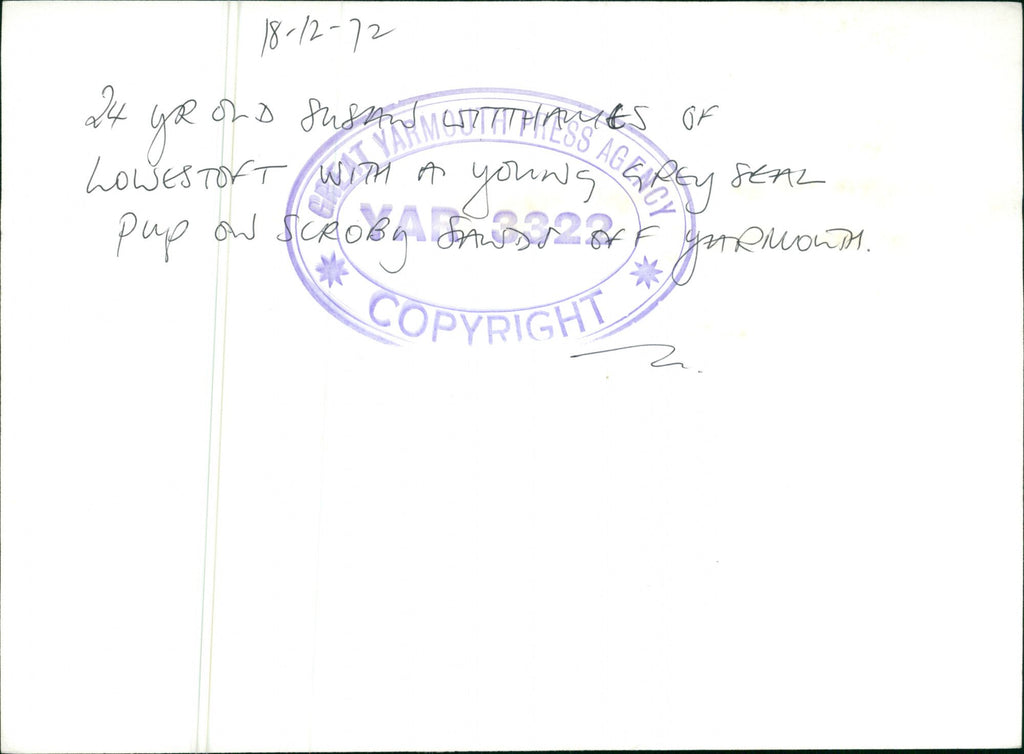 18-12-72
24 YR OLD SUSAN OF
LOWESTOFT WITH A YOUNG GREY SEAL
PUP ON SCROBY SANDS OFF YARMOUTH.
GREAT YARMOUTH PRESS AGENCY
YAR 3322
COPYRIGHT